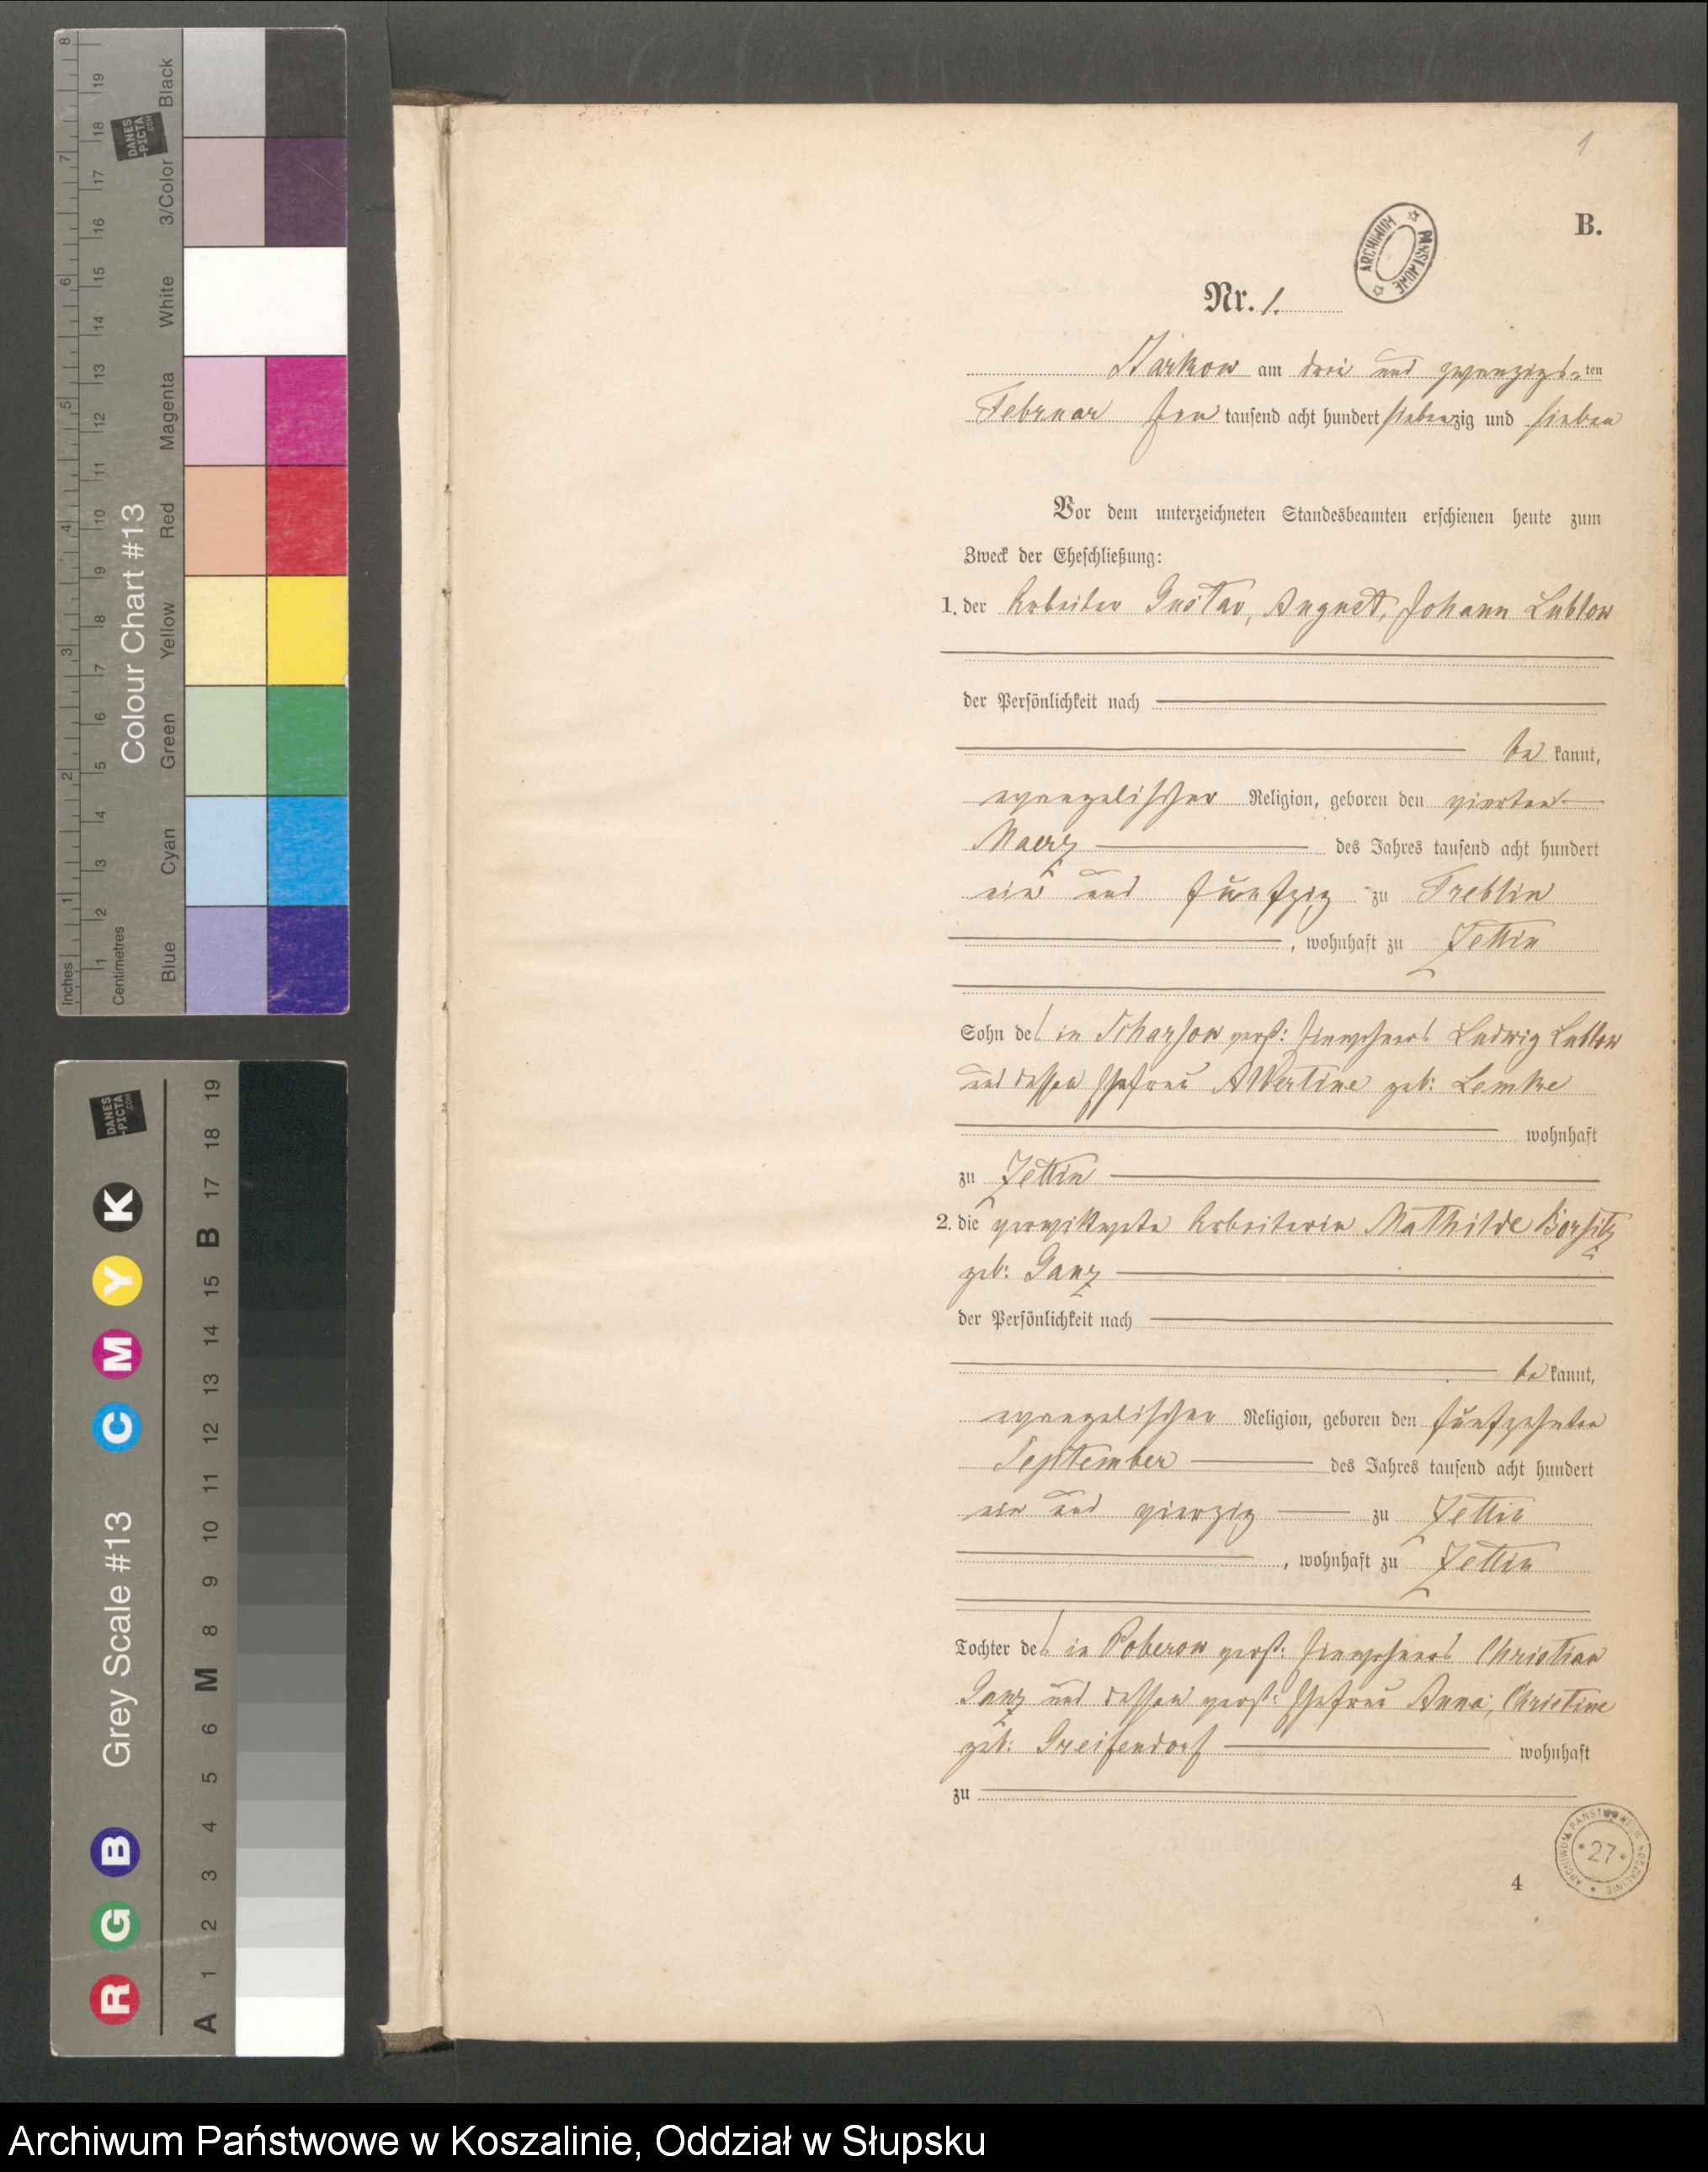 1
B.
ARCHIWUM PAŃSTWOWE
Nr. 1.
Starkow am drei und zwanzigs-ten
Februar Ein tausend acht hundert siebenzig und sieben
Vor dem unterzeichneten Standesbeamten erschienen heute zum
Zweck der Eheschließung:
1. der Arbeiter Gustav, August, Johann Lublow
der Persönlichkeit nach
be kannt,
evangelischer Religion, geboren den vierten
Maerz des Jahres tausend acht hundert
ein und fünfzig zu Treblin
, wohnhaft zu Zettin
Sohn des in verst: Einwohners Ludwig Lublow
und dessen Ehefrau Albertine geb: Lemke
wohnhaft
zu Zettin
2. die verwittwete Arbeiterin Mathilde
geb: Ganz
der Persönlichkeit nach
be kannt,
evangelischer Religion, geboren den fünfzehnten
September des Jahres tausend acht hundert
ein und vierzig zu Zettin
, wohnhaft zu Zettin
Tochter des in Poberow verst: Einwohners Christian
Ganz und dessen verst: Ehefrau Anna, Christine
geb: Greifendorf wohnhaft
zu
4
27
Colour Chart #13
Blue Cyan Green Yellow Red Magenta White 3/Color Black
Inches 1 2 3 4 5 6 7 8
Centimetres 1 2 3 4 5 6 7 8 9 10 11 12 13 14 15 16 17 18 19
DANES
-PICTA
.COM
Grey Scale #13
R G B C M Y K
A 1 2 3 4 5 6 M 8 9 10 11 12 13 14 15 B 17 18 19
DANES
-PICTA
.COM
Archiwum Państwowe w Koszalinie, Oddział w Słupsku